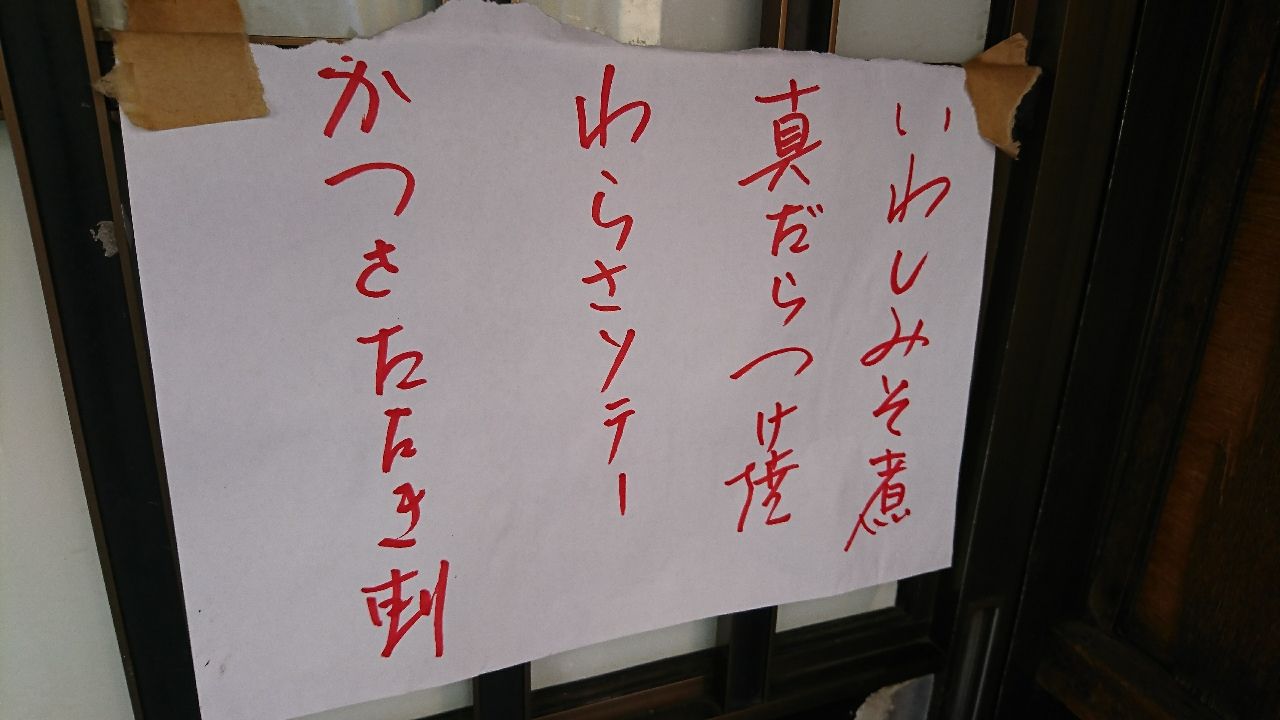 いわしみそ煮
真だらつけ焼
わらさソテー
かつさたたき刺